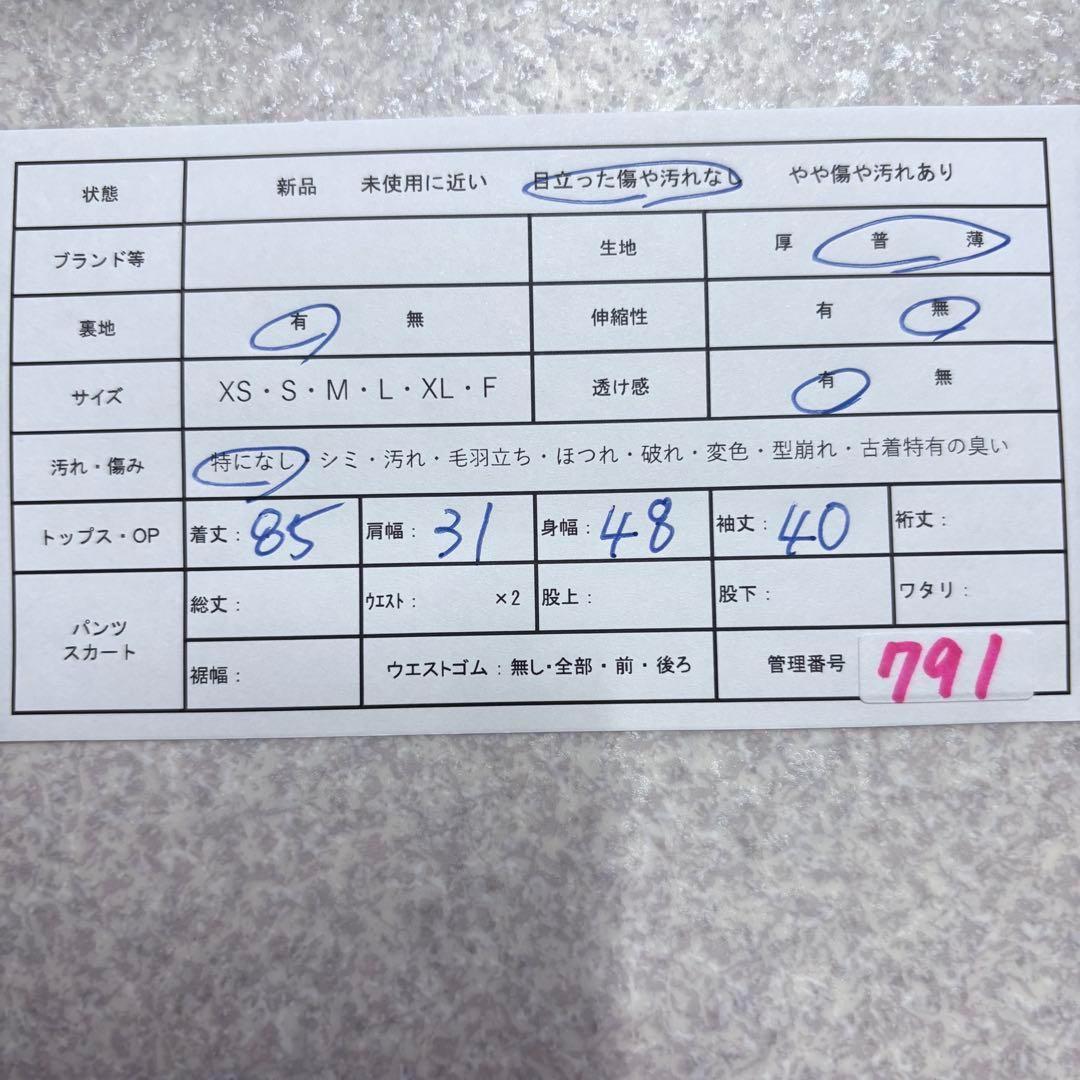 状態 新品 未使用に近い 目立った傷や汚れなし やや傷や汚れあり
ブランド等 生地 厚 普 薄
裏地 有 無 伸縮性 有 無
サイズ XS・S・M・L・XL・F 透け感 有 無
汚れ・傷み 特になし・シミ・汚れ・毛羽立ち・ほつれ・破れ・変色・型崩れ・古着特有の臭い
トップス・OP 着丈：85 肩幅：31 身幅：48 袖丈：40 裄丈：
パンツ
スカート
総丈： ｳｴｽﾄ： ×2 股上： 股下： ワタリ：
裾幅： ウエストゴム：無し・全部・前・後ろ 管理番号 791